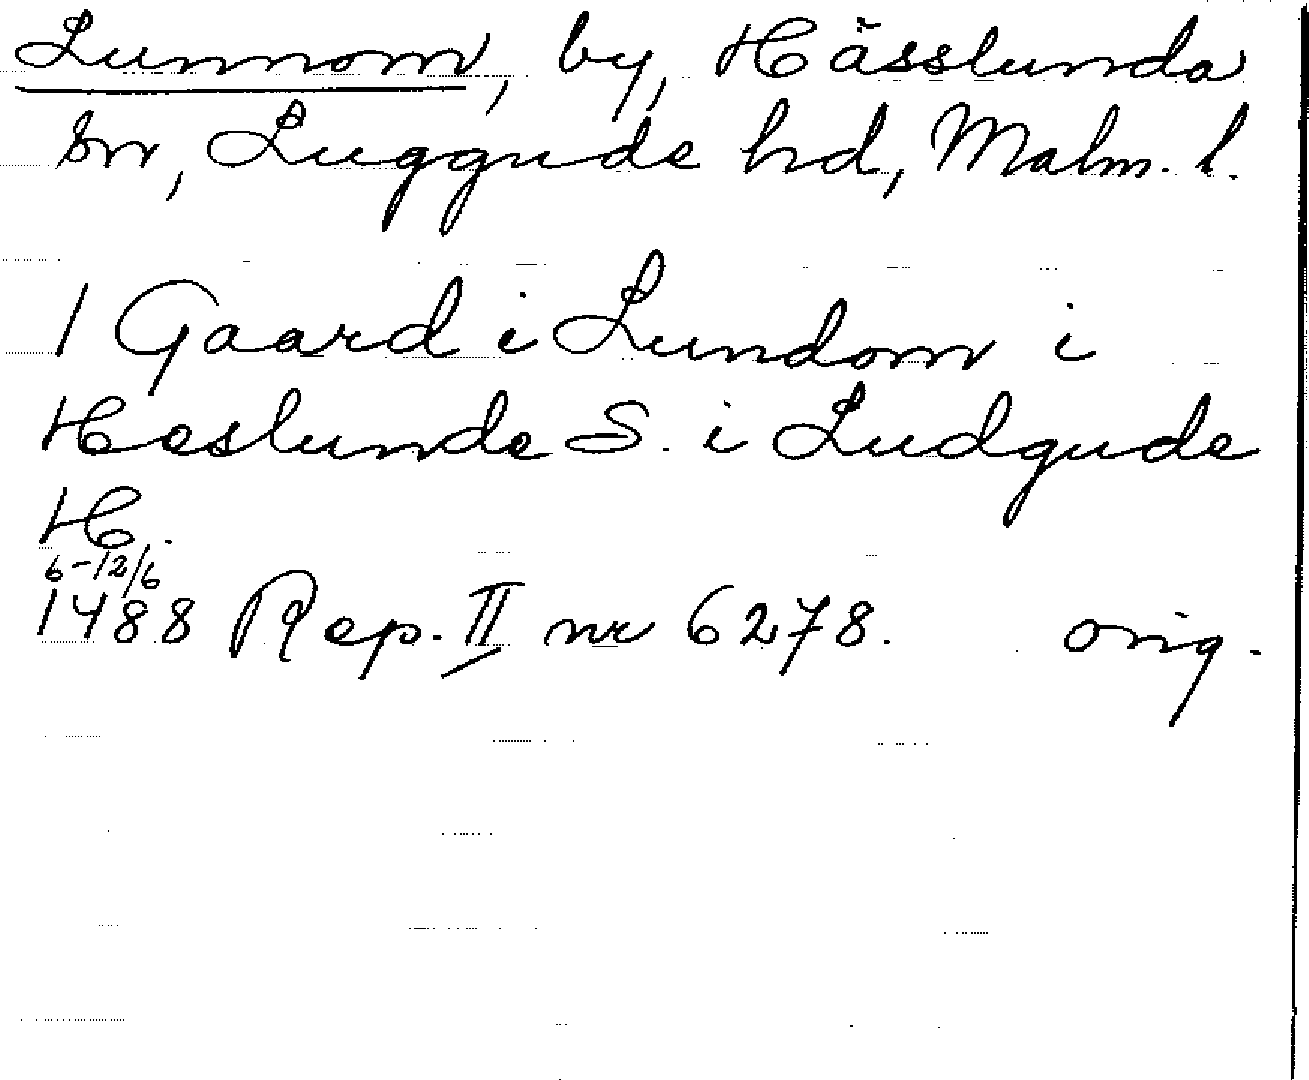 Lunnom, by, Hässlunda
sn, Luggude hd, Malm. l.
1 Gaard i Lundom i
Heslunde S. i Ludgude
H.
6-12/6
1488 Rep. II nr 6278. orig.